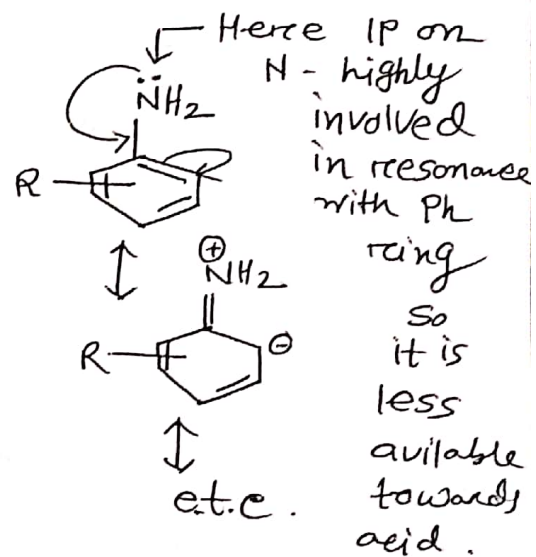 Here lP on
N - highly
involved
in resonance
with Ph
ring
so
it is
less
avilable
towards
acid.
N̈H2
R
⊕
NH2
R
⊖
e.t.c.